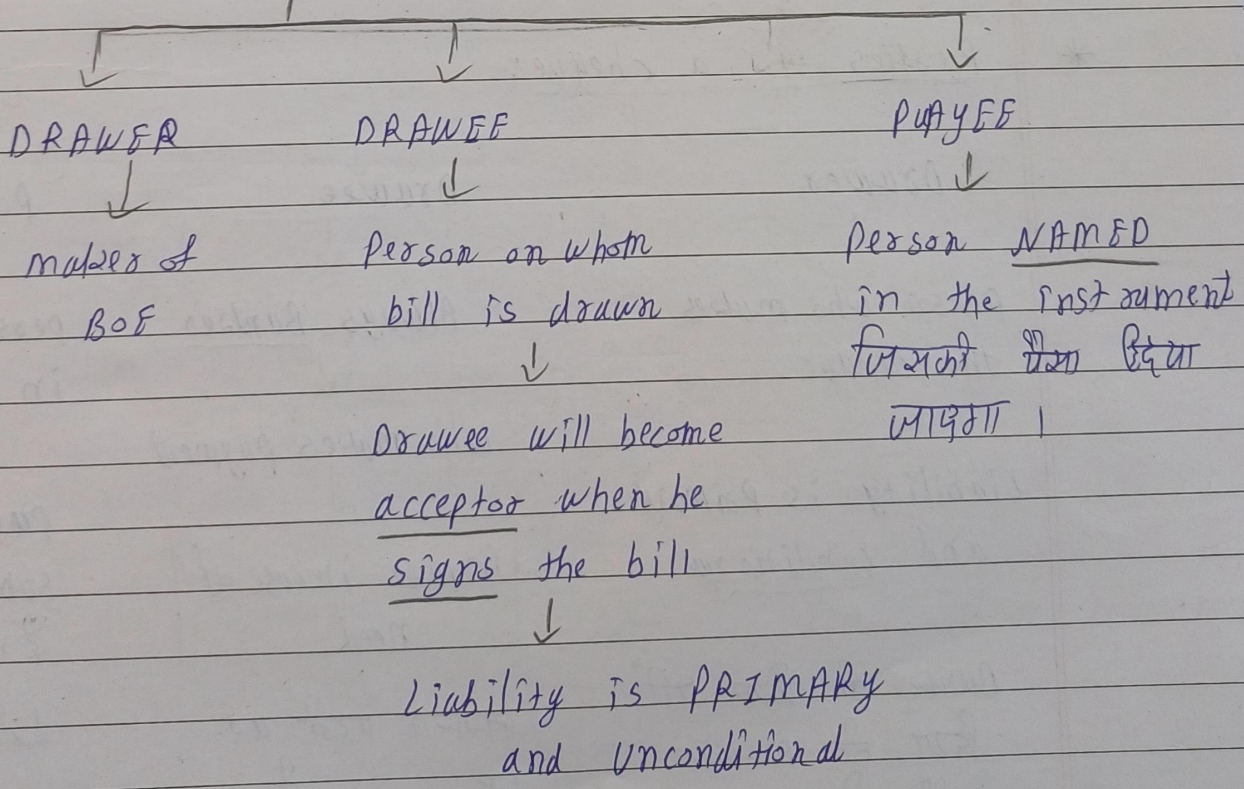 DRAWER
DRAWEE
PAYEE
maker of
BOE
Person on whom
bill is drawn
Drawee will become
acceptor when he
signs the bill
Liability is PRIMARY
and unconditional
person NAMED
in the instrument
जिसको पैसा दिया
जाएगा ।